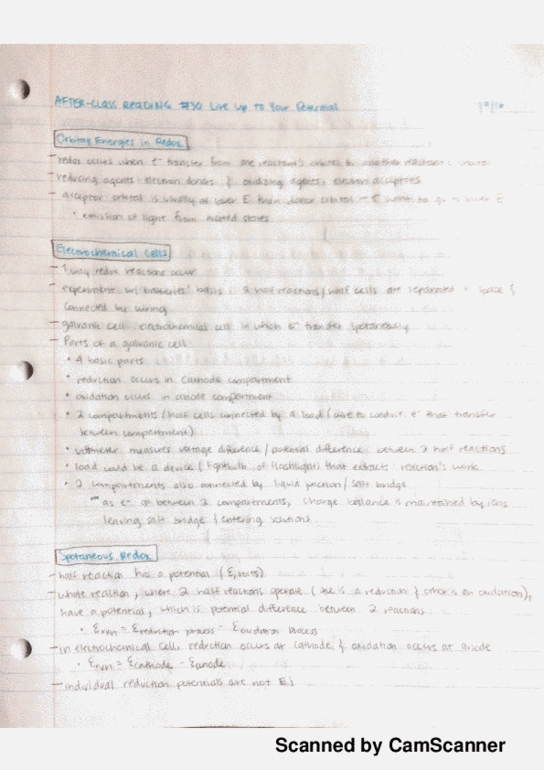 AFTER-CLASS READING #30 Live Up to Your Potential
Orbital Energies in Redox
- redox occurs when e- transfer from one reactant's orbital to another reactant's
- reducing agents: electron donors & oxidizing agents: electron acceptors
- acceptor orbital is usually at lower E than donor orbital - e- want to go to lower E
• emission of light from excited states
Electrochemical Cells
- 1 way redox reactions occur
- experiment w/ batteries' basis is 2 half reactions/half cells are separated in space &
connected by wiring
- galvanic cell: electrochemical cell in which e- transfer spotaneously
- Parts of a galvanic cell
• 4 basic parts
• reduction occurs in cathode compartment
• oxidation occurs in anode compartment
• 2 compartments/half cells connected by a load (wire to conduct e- that transfer
between compartment)
• voltmeter measures voltage difference/potential difference between 2 half reactions
• load could be a device (lightbulb of flashlight) that extracts reaction's work
• 2 compartments also connected by liquid junction/salt bridge
as e- go between 2 compartments, charge balance is maintained by ions
leaving salt bridge & entering solutions
Spotaneous Redox
- half reaction has a potential (Ɛ, volts)
- whole reaction, where 2 half reactions operate (one is a reduction & other's an oxidation),
have a potential, which is potential difference between 2 reactions
• Ɛrxn = Ɛreduction process - Ɛoxidation process
- in electrochemical cell, reduction occurs at cathode & oxidation occurs at anode
• Ɛrxn = Ɛcathode - Ɛanode
- individual reduction potentials are not E;
Scanned by CamScanner